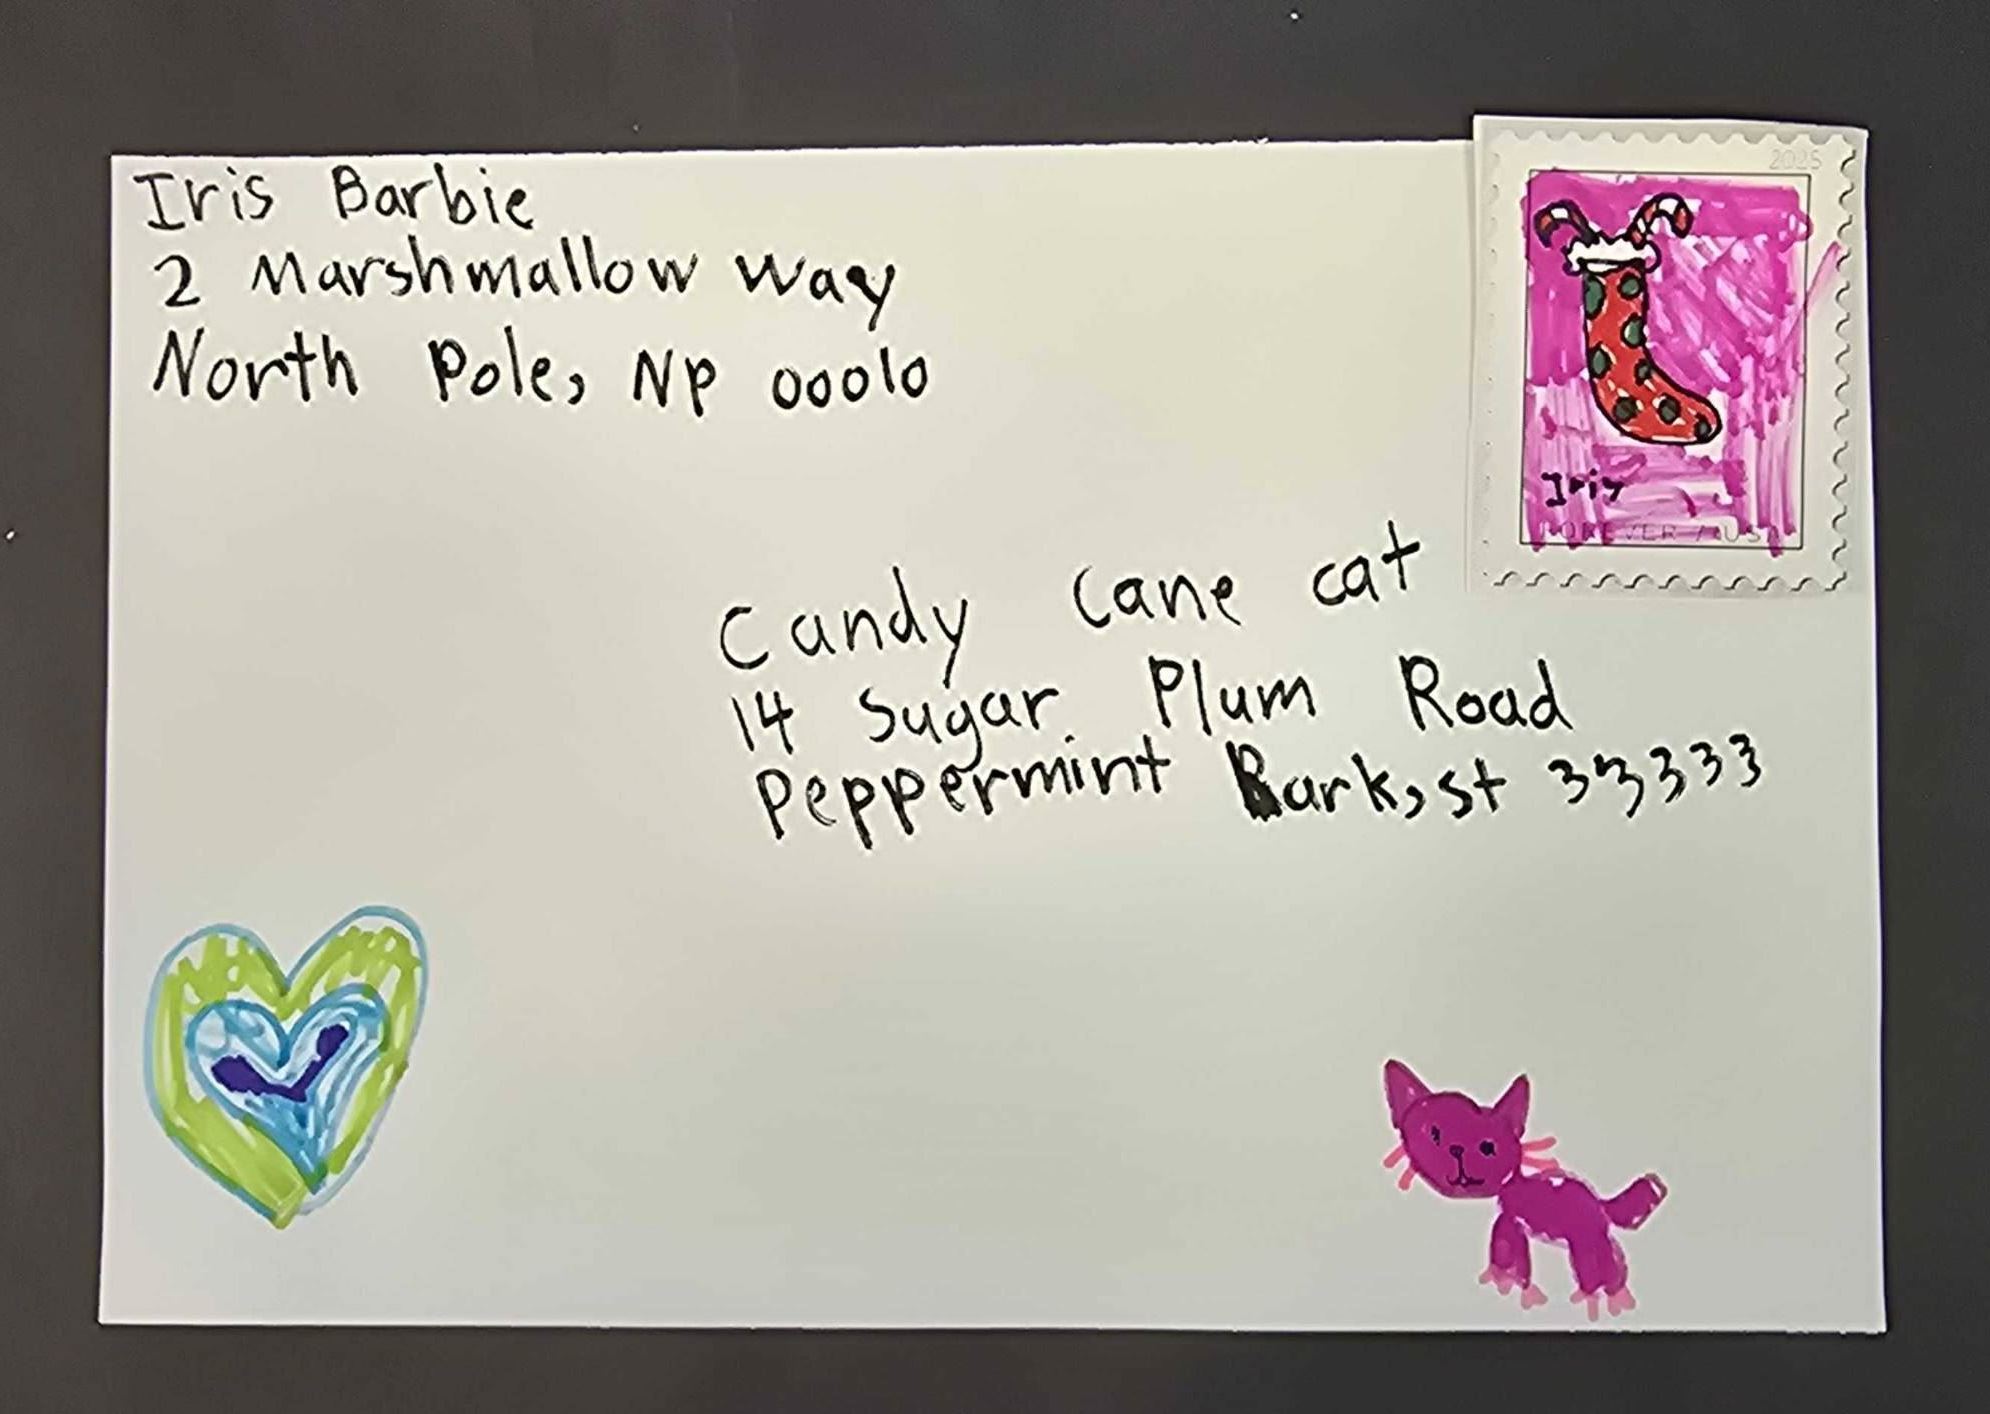 Iris Barbie
2 Marshmallow Way
North Pole, NP 00010
2025
Iris
FOREVER / USA
Candy Cane cat
14 Sugar Plum Road
Peppermint Bark, st 33333